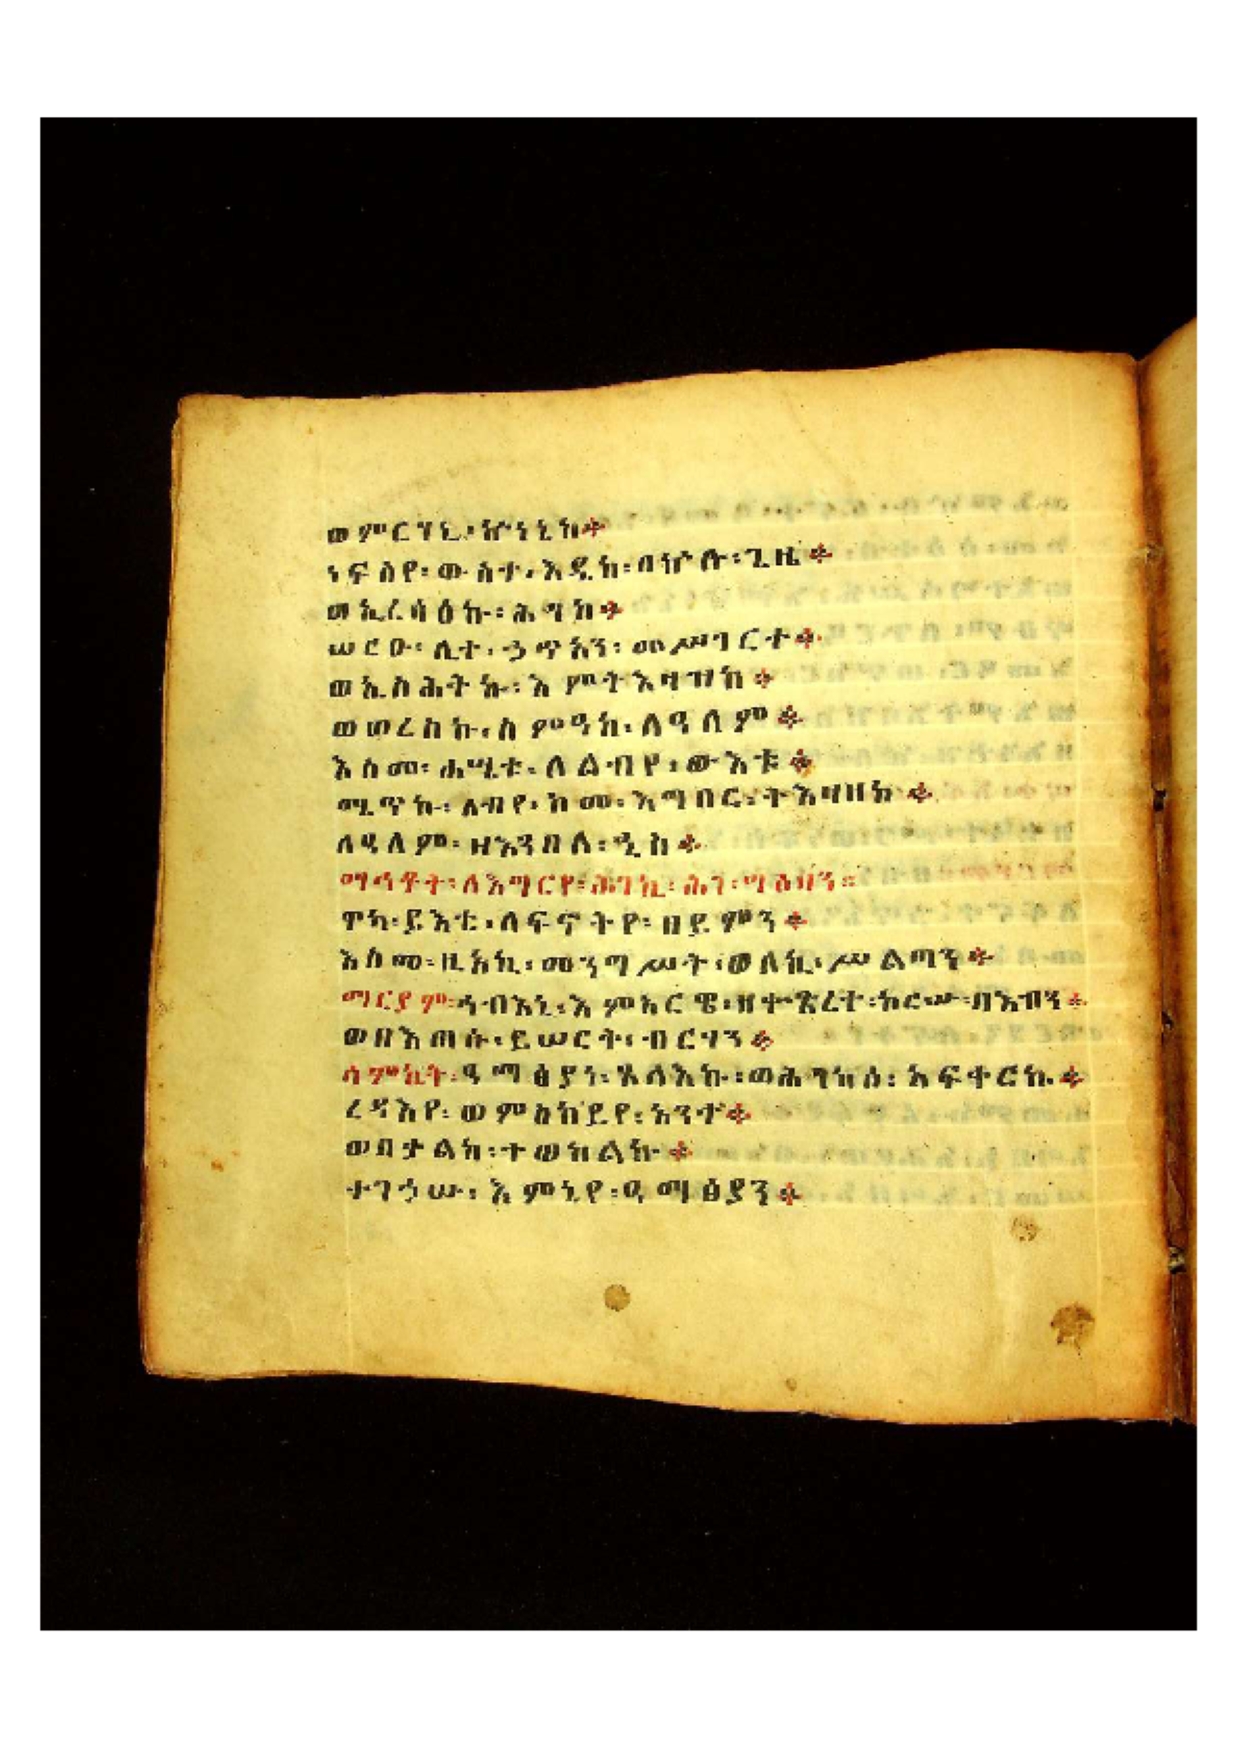 ወምርሃኒ፡ ኵነኔከ።
ነፍስየ፡ ውስተ፡ እዴከ፡ በኵሉ፡ ጊዜ።
ወኢረሳዕኩ፡ ሕግከ።
ሠርዑ፡ ሊተ፡ ኃጥአን፡ መሥገርተ።
ወኢስሕትኩ፡ እምትእዛዝከ።
ወወረስኩ፡ ስምዓከ፡ ለዓለም።
እስመ፡ ሐሤቱ፡ ለልብየ፡ ውእቱ።
ሜጥኩ፡ ልብየ፡ ከመ፡ እግበር፡ ትእዛዘከ።
ለዓለም፡ ዘእንበለ፡ ዒስ።
ማኅቶት፡ ለእግርየ፡ ሕገኪ፡ ሕገ፡
ይእቲ፡ ለፍኖትየ፡ ዘይምን።
እስመ፡ ዚአኪ፡ መንግሥት፡ ወለኪ፡ ሥልጣን።
ማርያም፡ ኅብእኒ፡ እምአርዌ፡ ዘተጼረተ፡ ከርሡ፡ በእብን።
ወዘእጠሱ፡ ይሠርት፡ ብርሃን።
ሳምኬት፡ ዓማፅያነ፡ ጸላእኩ፡ ወሕገከሰ፡ አፍቀርኩ።
ረዳእየ፡ ወምስካይየ፡ አንተ።
ወበቃልከ፡ ተወከልኩ።
ተገኃሡ፡ እምኔየ፡ ዓማፅያን።